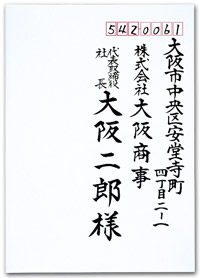 5420061
大阪市中央区安堂寺町
四丁目二ー一
株式会社大阪商事
代表取締役
社長
大阪二郎様